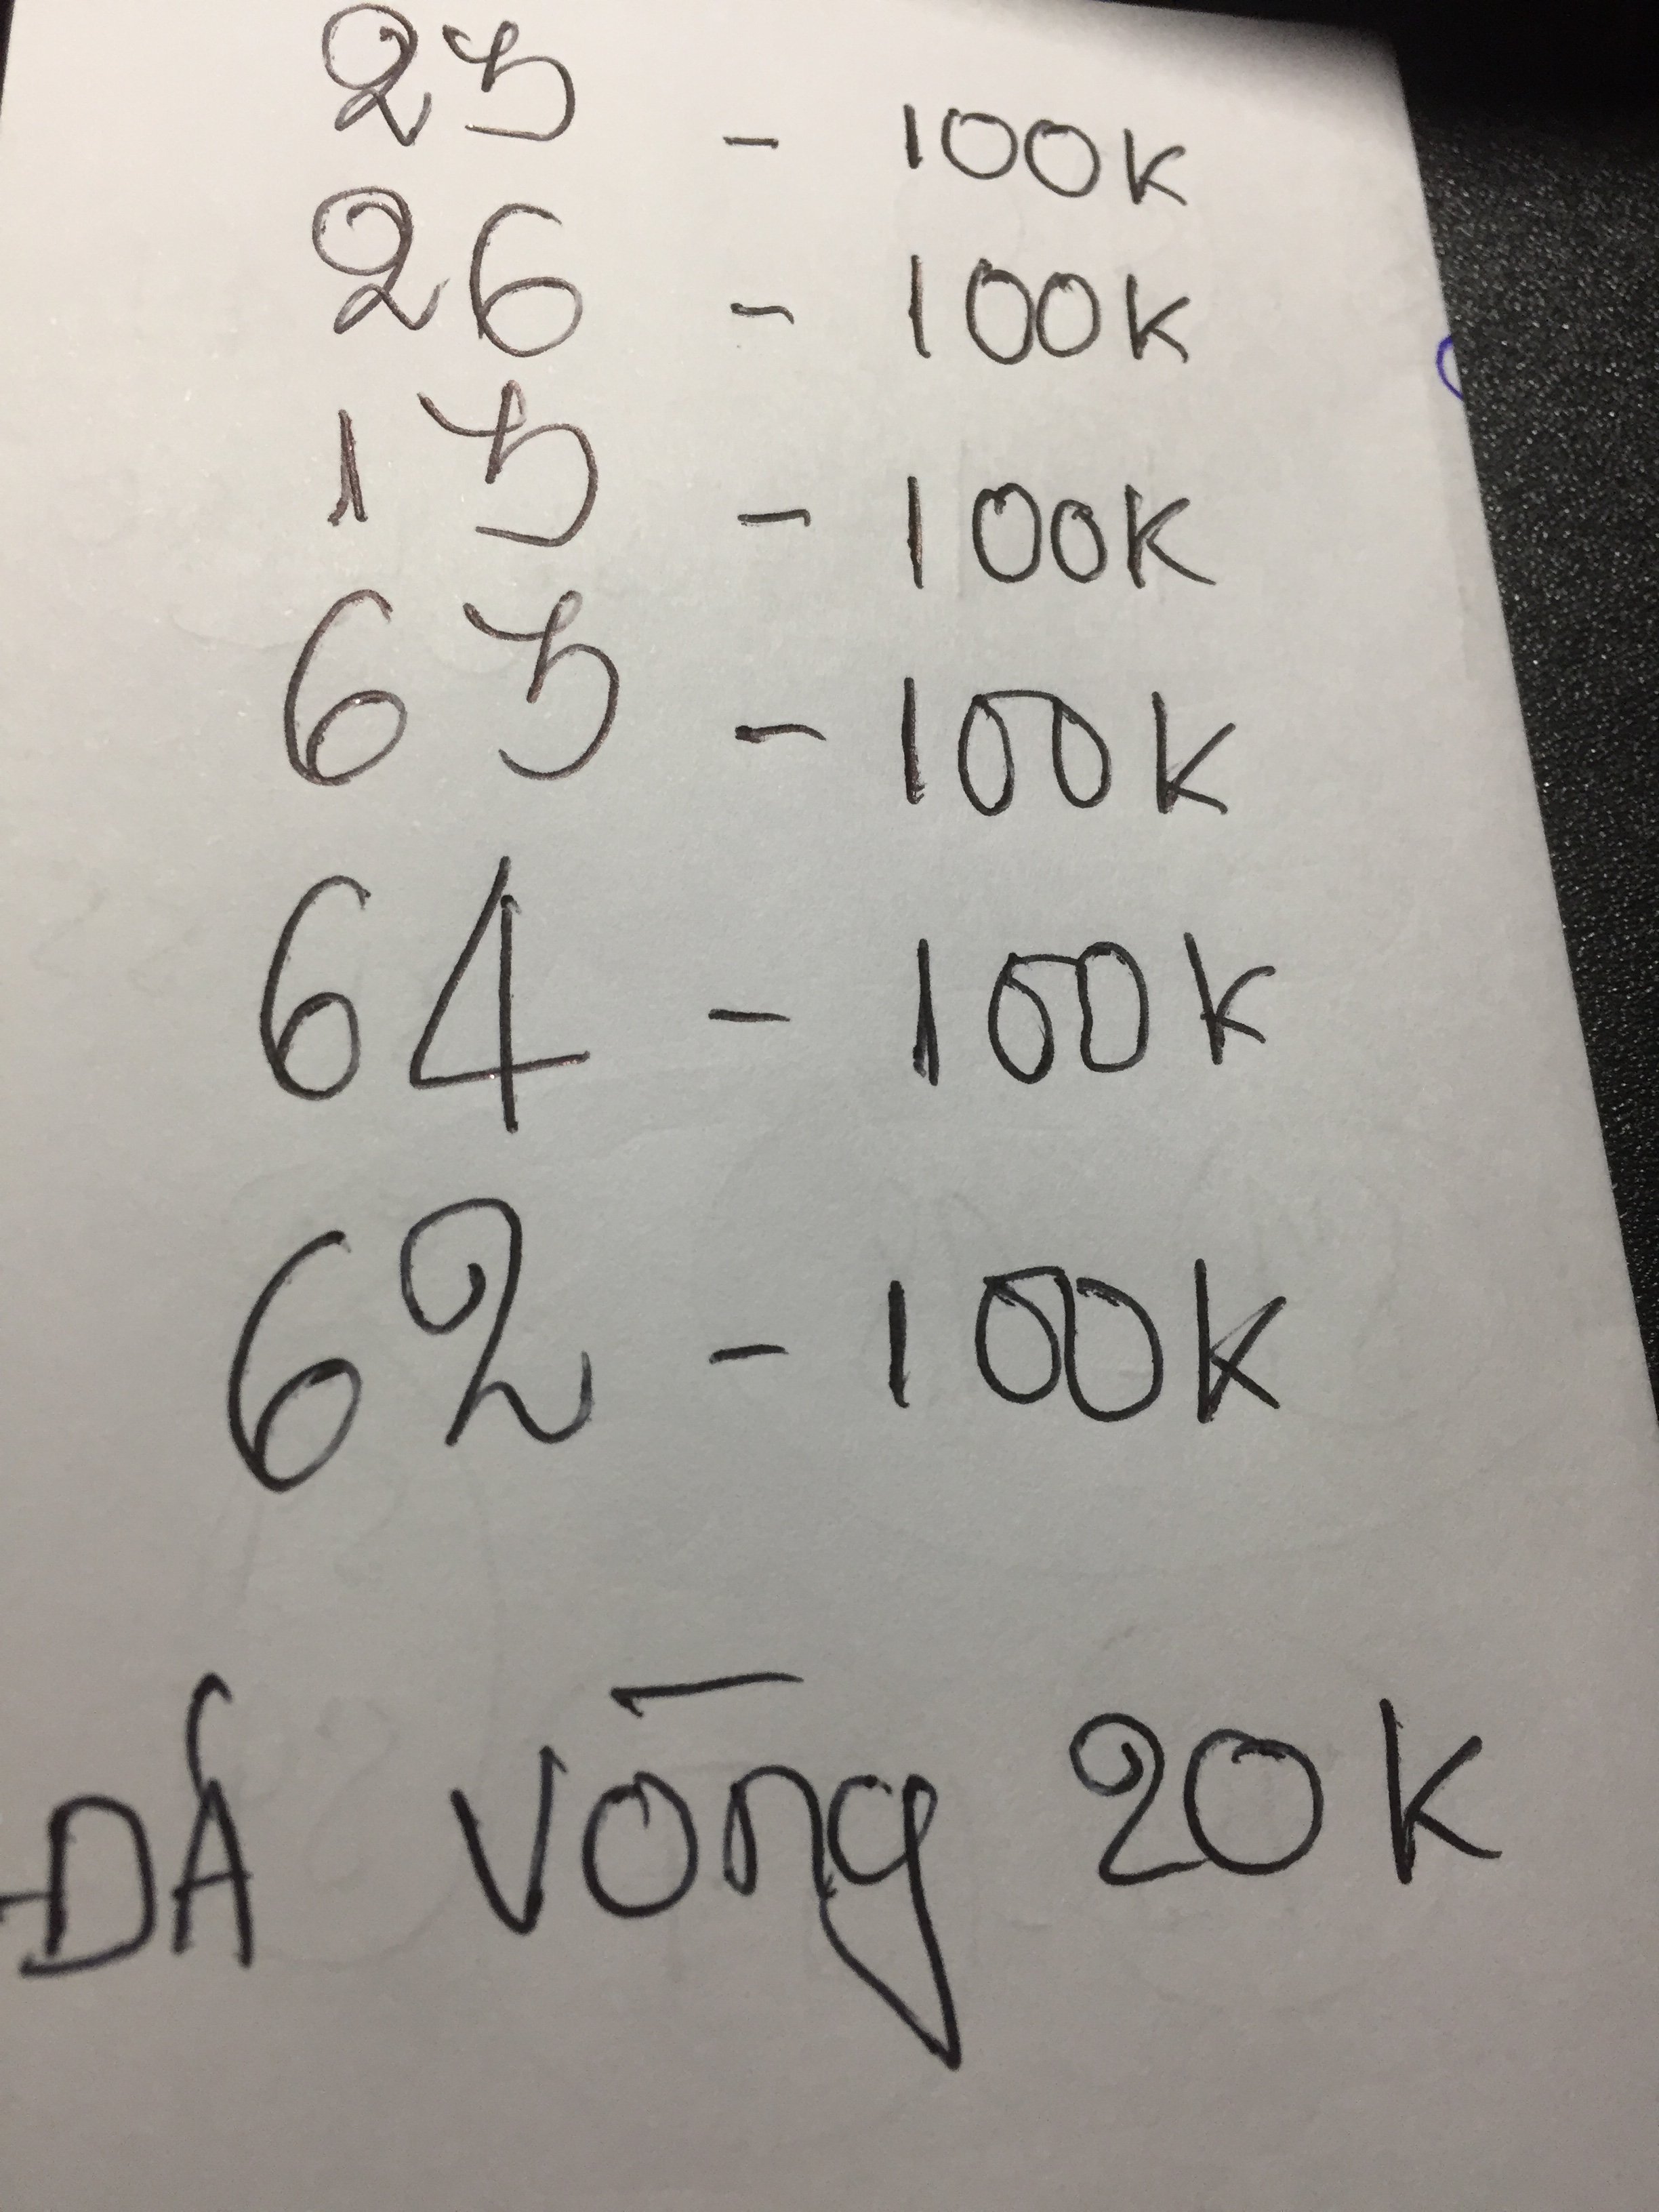 25 - 100k
26 - 100k
15 - 100k
65 - 100k
64 - 100k
62 - 100k
ĐÁ vōng 20k